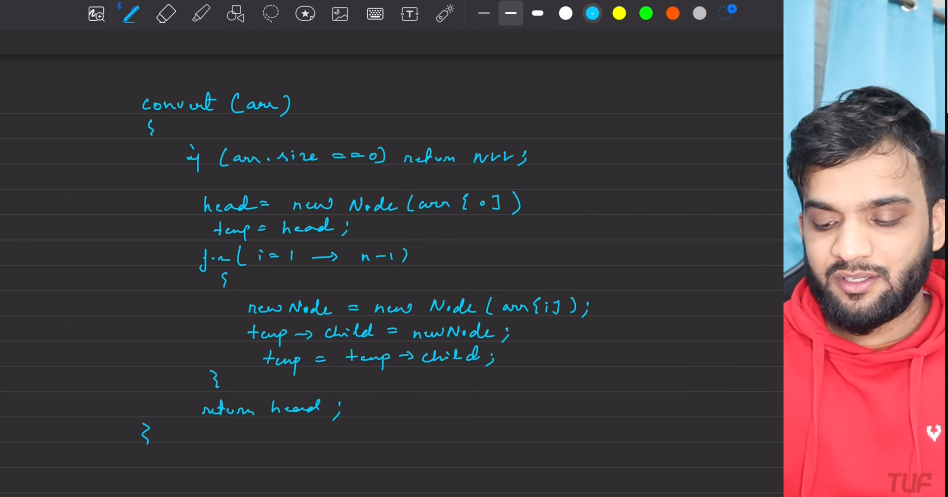 convert (arr)
{
if (arr.size == 0) return NULL;
head = new Node (arr[0])
temp = head;
for( i=1 → n-1)
{
newNode = new Node (arr[i]);
temp → child = newNode;
temp = temp → child;
}
return head;
}
TUF